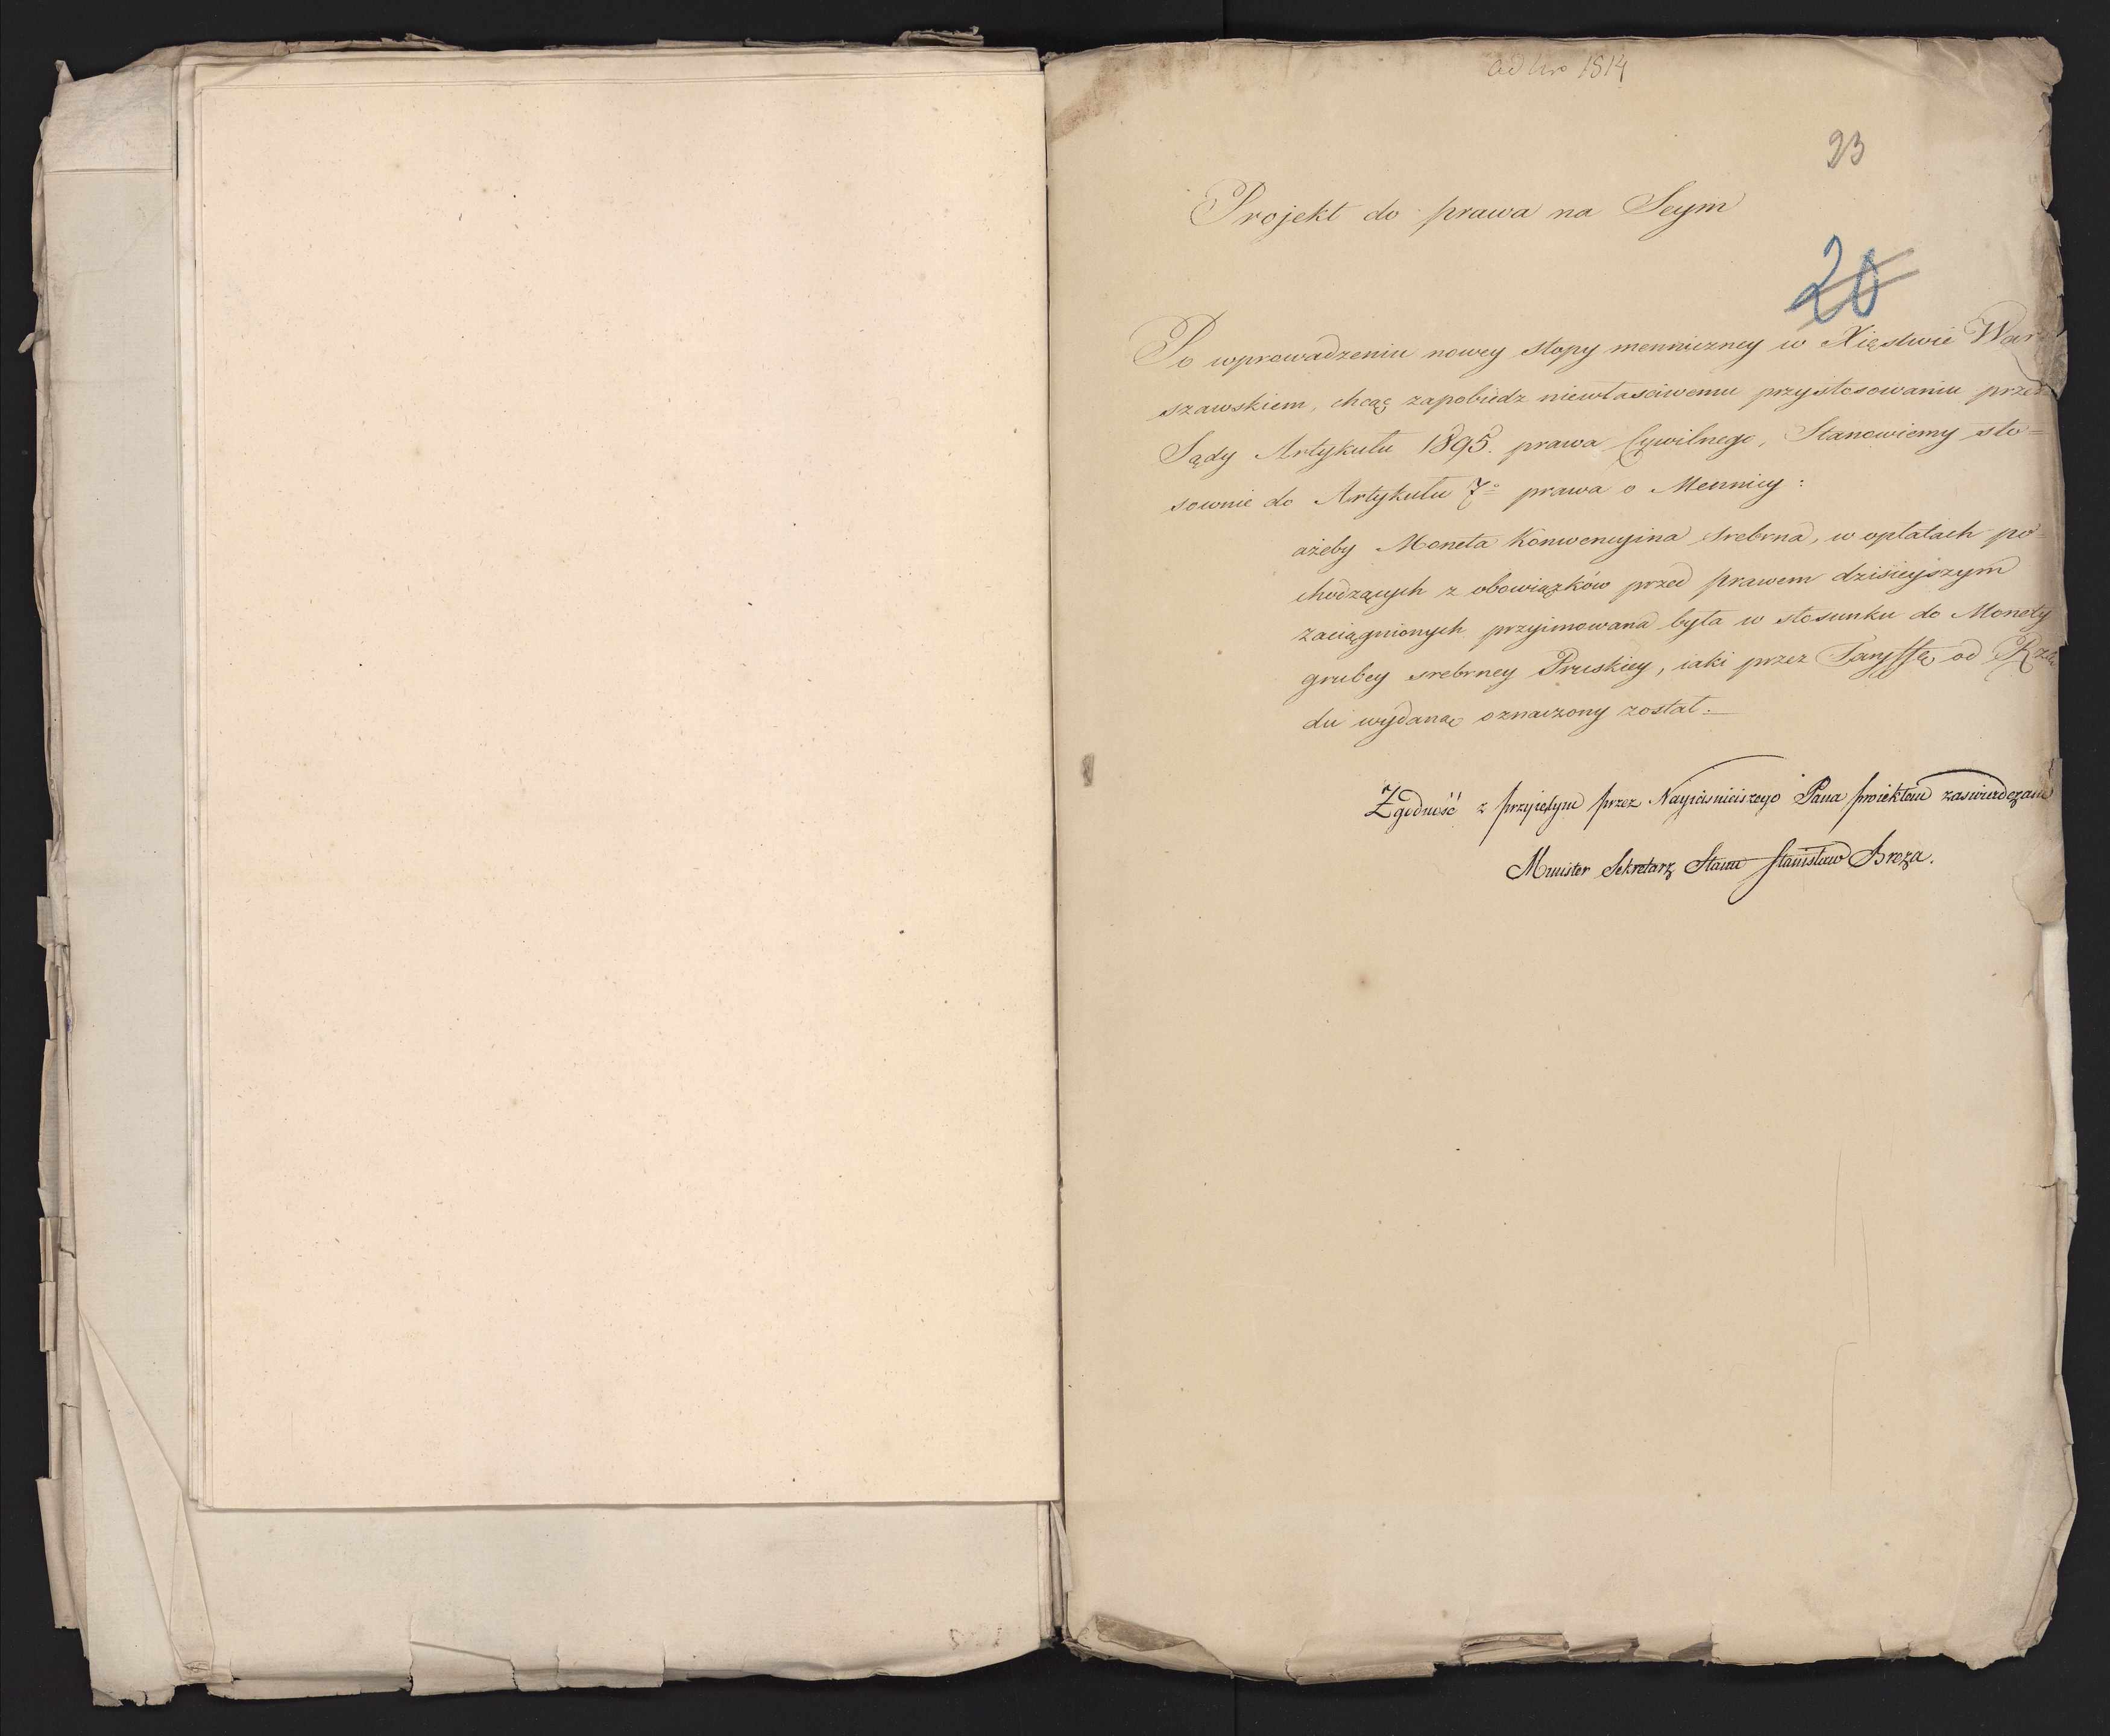 ad Nro 1814
23
Projekt do prawa na Seym
20
Po wprowadzeniu nowey stopy menniczney w Xięstwie War
szawskiem, chcąc zapobiedz niewłaściwemu przystosowaniu przez
Sądy Artykułu 1895. prawa Cywilnego, Stanowiemy sto=
sownie do Artykułu 7º prawa o Mennicy:
ażeby Moneta Konwencyina Srebrna, w opłatach po=
chodzących z obowiązków przed prawem dzisieyszym
zaciągnionych przyimowana była w stosunku do Monety
grubey srebrney Pruskiey, iaki przez Taryffę od Rzą
du wydaną oznaczony został.—
Zgodność z przyiętym przez Nayiaśnieiszego Pana proiektem zaświadczam
Minister Sekretarz Stanu Stanisław Breza.